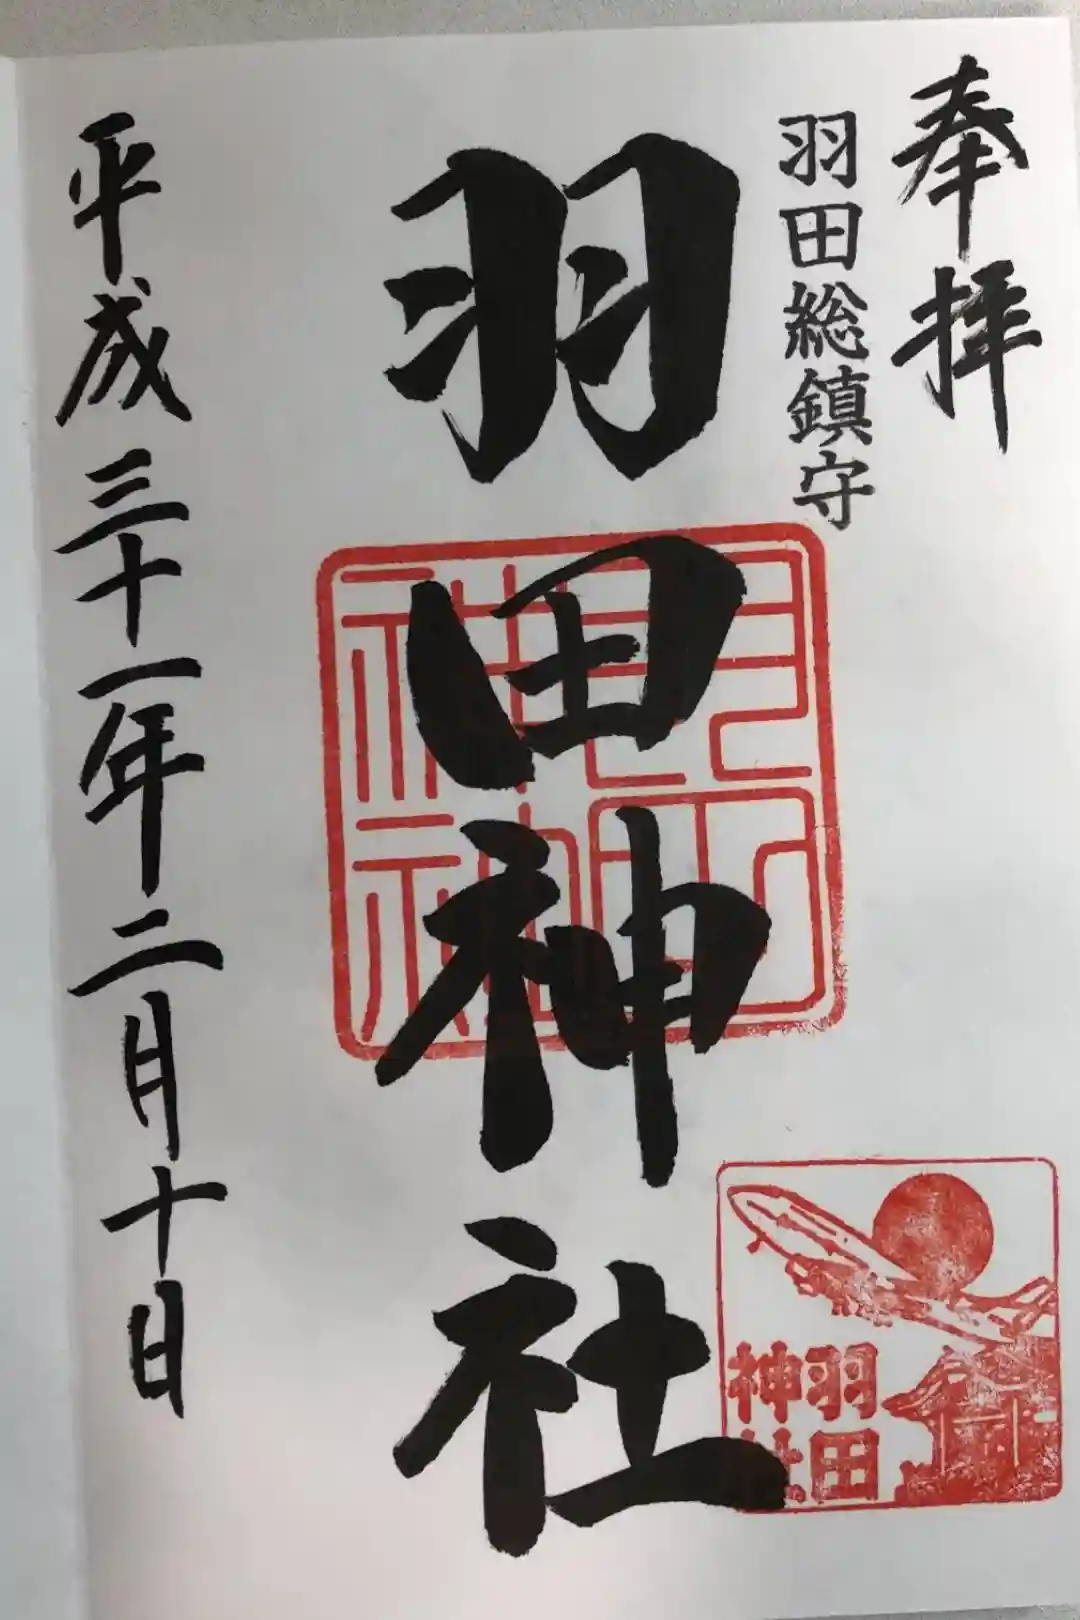 奉拝
羽田総鎮守
羽田神社
平成三十一年二月十日
羽田
神社